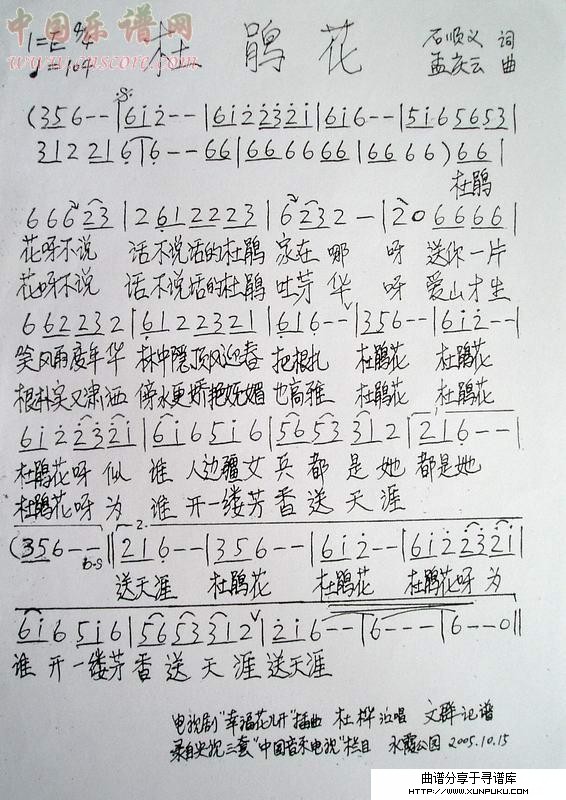 中国乐谱网
www.cnscore.com
1=E 4/4
♩=104
杜鹃花
石顺义 词
孟庆云 曲
(356--|6i2--|6i2232i|6i6--|5i65653|
3122216|6--66|6666666|6666)66|
杜鹃
66623|26122223|6232-|206666|
花呀不说 话不说话的杜鹃 家在哪 呀 送你一片
花呀不说 话不说话的杜鹃 吐芽华 呀 爱山才生
662232|6122321|616--|356--|6i2--|
笑风雨度年华 林中隐顶风迎春 把根扎 杜鹃花 杜鹃花
根朴实又潇洒 傍水更娇艳妩媚 也高雅 杜鹃花 杜鹃花
6i2232i|6i65i6|5653312|216--|
杜鹃花呀似 谁 人边疆女兵都是她都是她
杜鹃花呀为 谁 开一缕芳香送天涯
(356--||216--|356--|6i2--|6i2232i|
D.S
2.
送天涯 杜鹃花 杜鹃花 杜鹃花呀为
6i65i6|5653312|2i6--|6---|6--0||
谁 开一缕芳香送天涯送天涯
电视剧"幸福花儿开"插曲 杜桦 演唱 文群记谱
录自央视三套"中国音乐电视"栏目 永霞公园 2005.10.15
曲谱分享于寻谱库
HTTP://WWW.XUNPUKU.COM